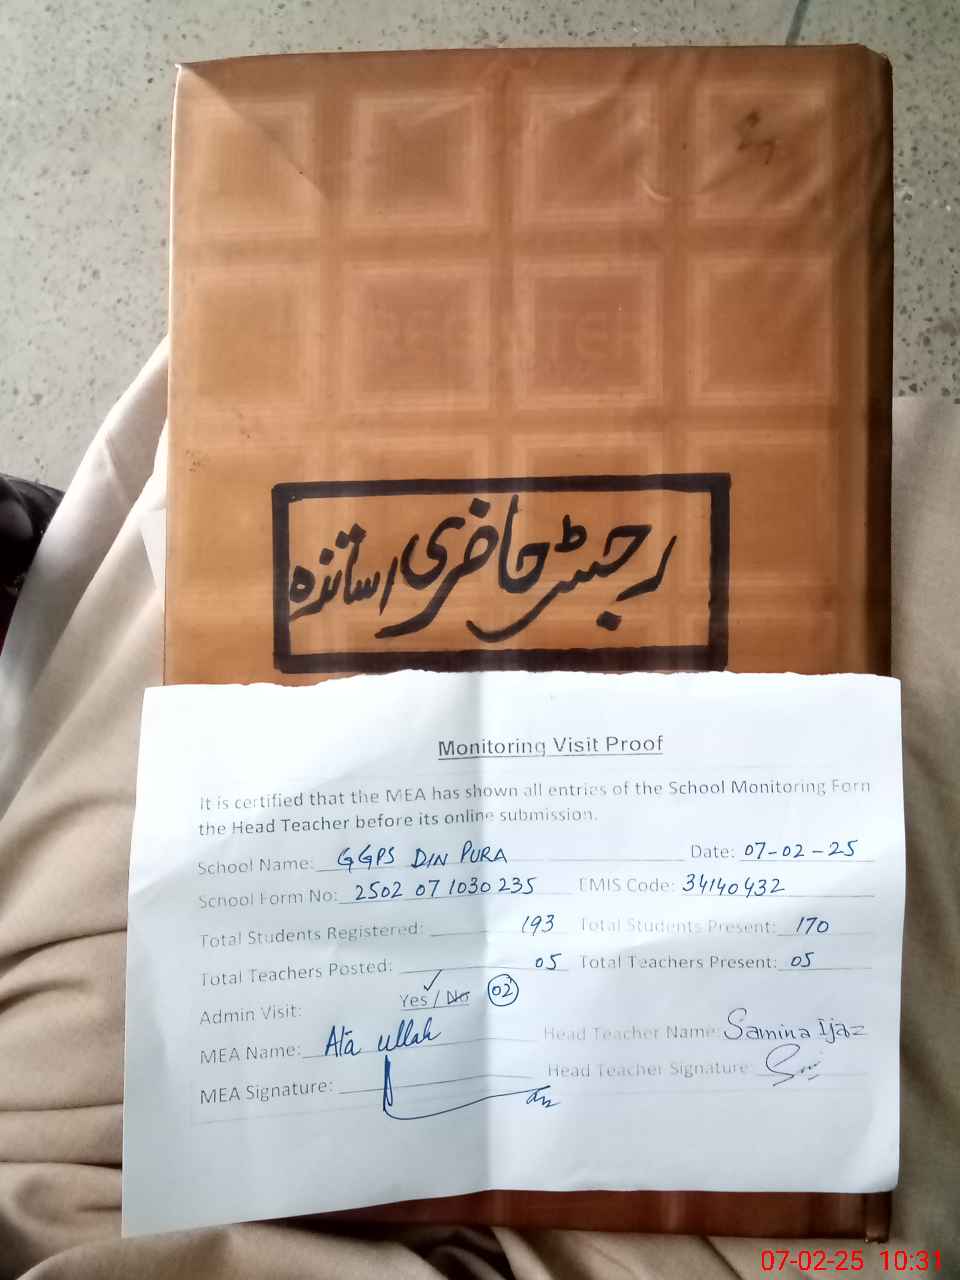 REGISTER
رجسٹر حاضری اساتذہ
Monitoring Visit Proof
It is certified that the MEA has shown all entries of the School Monitoring Form
the Head Teacher before its online submission.
School Name: GGPS DIN PURA Date: 07-02-25
School Form No: 2502 07 1030 235 EMIS Code: 34140432
Total Students Registered: 193 Total Students Present: 170
Total Teachers Posted: 05 Total Teachers Present: 05
Admin Visit: Yes / No 02
MEA Name: Ata ullah Head Teacher Name: Samina Ijaz
MEA Signature: Head Teacher Signature:
07-02-25 10:31